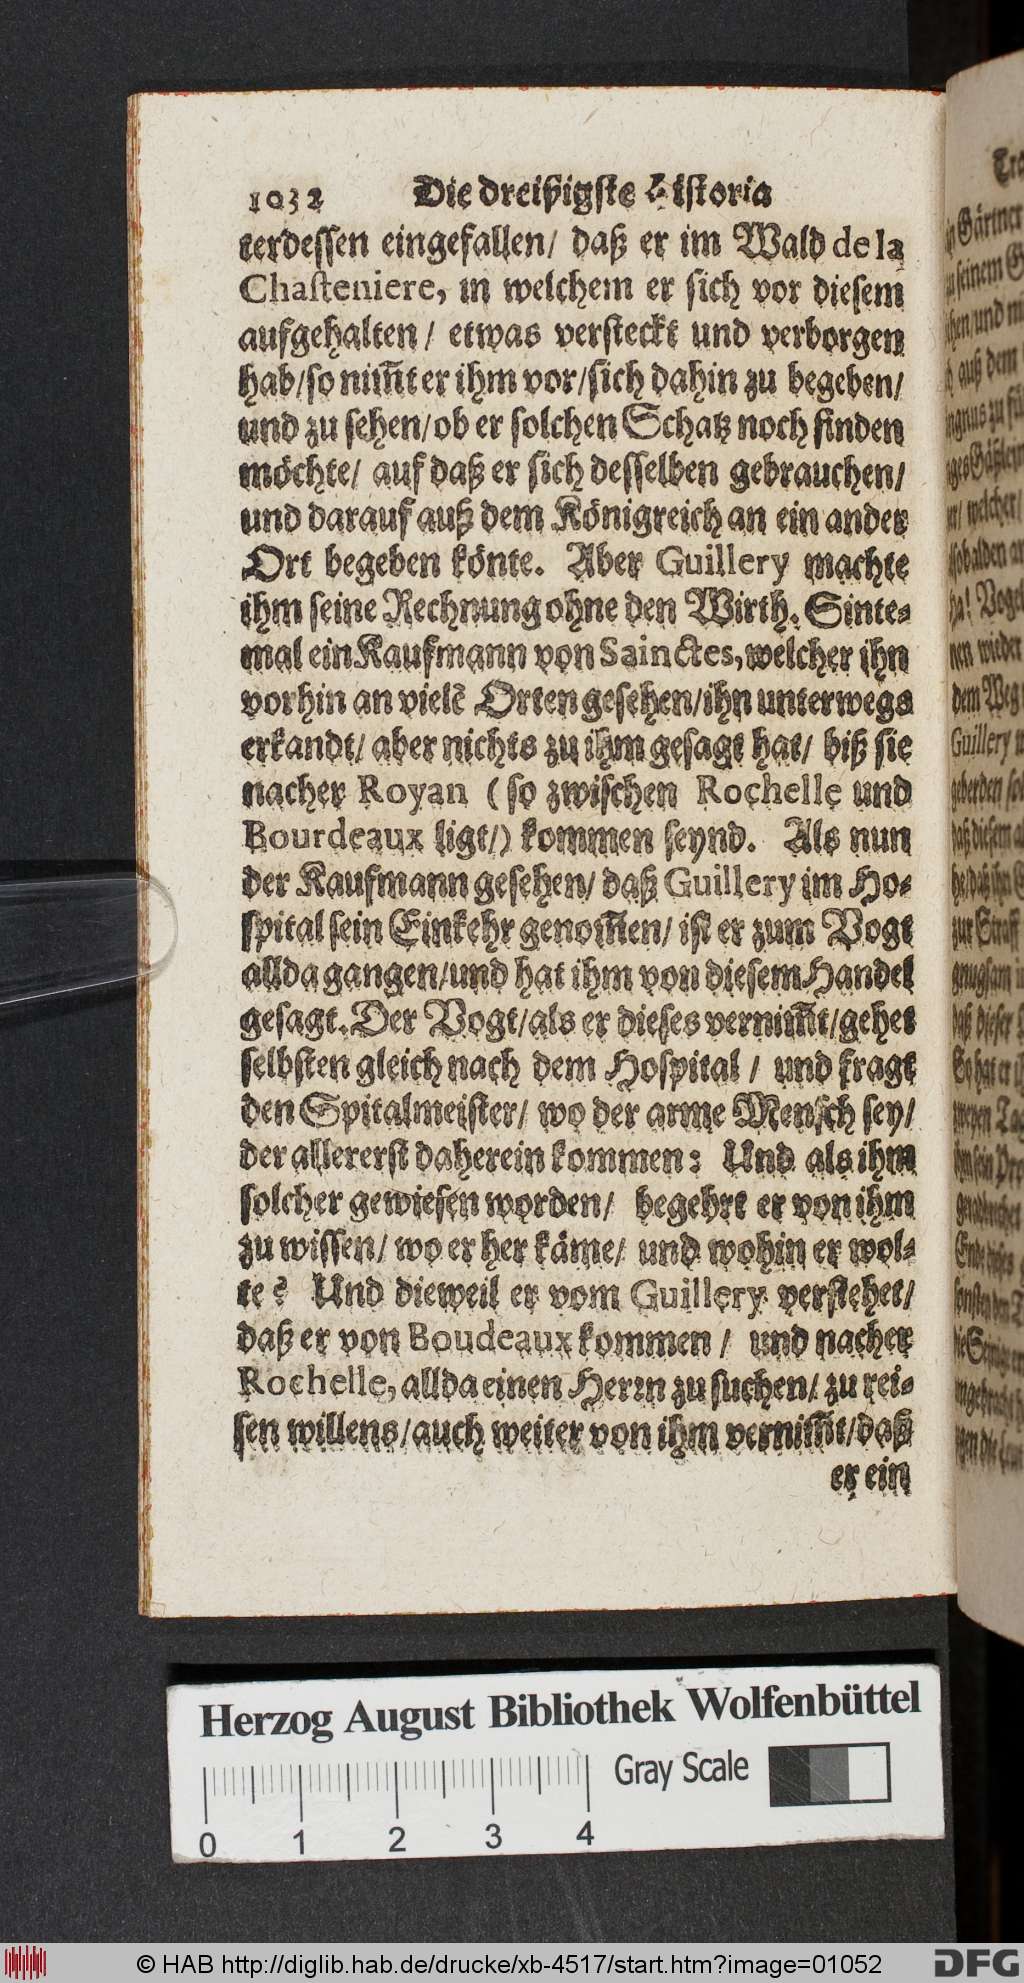 1032 Die dreißigste Historia
terdessen eingefallen/ daß er im Wald de la
Chasteniere, in welchem er sich vor diesem
aufgehalten/ etwas versteckt und verborgen
hab/ so nim̃t er ihm vor/ sich dahin zu begeben/
und zu sehen/ ob er solchen Schatz noch finden
möchte/ auf daß er sich desselben gebrauchen/
und darauf auß dem Königreich an ein ander
Ort begeben könte. Aber Guillery machte
ihm seine Rechnung ohne den Wirth. Sinte-
mal ein Kaufmann von Sainctes, welcher ihn
vorhin an vielẽ Orten gesehen/ ihn unterwegs
erkandt/ aber nichts zu ihm gesagt hat/ biß sie
nacher Royan (so zwischen Rochelle und
Bourdeaux ligt/) kommen seynd. Als nun
der Kaufmann gesehen/ daß Guillery im Ho-
spital sein Einkehr genom̃en/ ist er zum Vogt
allda gangen/ und hat ihm von diesem Handel
gesagt. Der Vogt/ als er dieses vernim̃t/ gehet
selbsten gleich nach dem Hospital/ und fragt
den Spitalmeister/ wo der arme Mensch sey/
der allererst daherein kommen: Und als ihm
solcher gewiesen worden/ begehrt er von ihm
zu wissen/ wo er her käme/ und wohin er wol-
te? Und dieweil er vom Guillery verstehet/
daß er von Boudeaux kommen/ und nacher
Rochelle, allda einen Herrn zu suchen/ zu rei-
sen willens/ auch weiter von ihm vernim̃t/ daß
er ein
Herzog August Bibliothek Wolfenbüttel
Gray Scale
0 1 2 3 4
© HAB http://diglib.hab.de/drucke/xb-4517/start.htm?image=01052
DFG